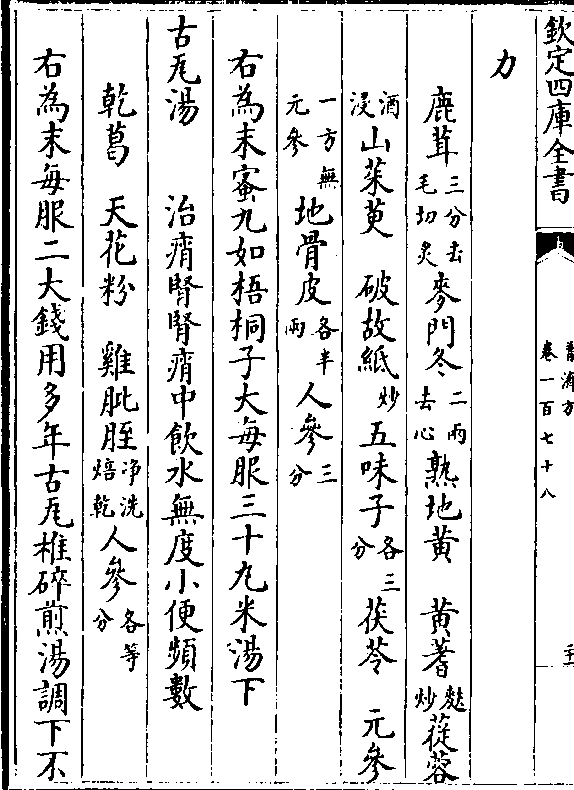 欽定四庫全書
普濟方
卷一百七十八
力
鹿茸三分去毛切炙麥門冬二兩去心熟地黄 黄蓍 蓯蓉麩炒
酒浸山茱萸 破故紙炒五味子各三分茯苓 元參
一方無元參地骨皮各半兩人參三分
右為末蜜丸如梧桐子大每服三十丸米湯下
古瓦湯 治痟腎腎痟中飲水無度小便頻數
乾葛 天花粉 雞肶胵净洗焙乾人參各等分
右為末每服二大錢用多年古瓦椎碎煎湯調下不